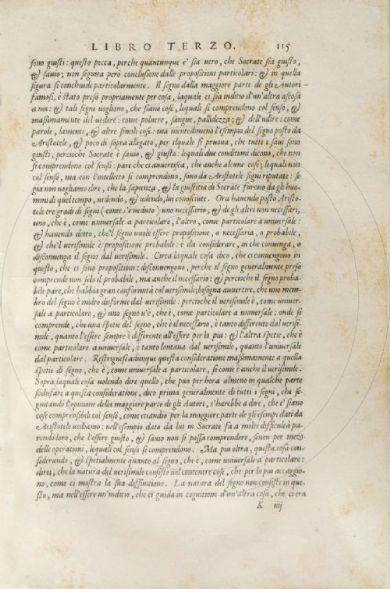 LIBRO TERZO. 115
sono giusti: questo pecca, perche quantunque e' sia uero, che Socrate sia giusto,
& sauio; non seguita però conclusione dalle proposizioni particolari: & in quella
figura si conchiude particolarmente. Il segno dalla maggiore parte de gli Autori
famosi, è stato preso propriamente per cosa, laquale ci sia inditio d'un'altra ascosa
a noi: & tali segni uogliono, che siano cose, lequali si comprendono col senso, &
massimamente del uedere: come poluere, sangue, pallidezza; & dell'udire: come
parole, lamenti, & altre simili cose: ma intendimento l'esempio del segno posto da
Aristotele, & poco di sopra allegato, per ilquale si pruoua, che tutti i saui sono
giusti, percioche Socrate è sauio, & giusto: lequali due conditioni dicono, che non
si comprendono col senso: pare che ci auuertisca, che anche alcune cose; lequali non
col senso, ma con l'intelletto si comprendono, sono da Aristotele segni riputate: se
gia non uogliamo dire, che la sapienza, & la giustitia di Socrate furono da gli huomini
di quel tempo, uedendo, & udendo, lui conosciute. Ora hauendo posto Aristotele
tre gradi di segni; come s'è ueduto: uno necessario, & de gli altri non necessari,
uno che è, come uniuersale a particolare, l'altro, come particolare a uniuersale:
& hauendo detto, che'l segno uuole essere propositione, o necessaria, o probabile,
& che'l uerisimile è propositione probabile: è da considerare, in che conuenga, o
disconuenga il segno dal uerisimile. Circa laquale cosa dico, che ei conuengono in
questo, che ei sono propositioni: disconuengono, perche il segno generalmente preso
comprende non solo il probabile, ma anche il necessario: & perche il segno probabile
pare, che habbia gran conformità col uerisimile; bisogna auuertire, che uno membro
del segno è molto disforme dal uerisimile: percioche il uerisimile è, come uniuersale
a particolare, & uno segno u'è, che è, come particolare a uniuersale: onde si
comprende, che una spetie del segno, che è il necessario, è tanto differente dal uerisimile,
quanto l'essere sempre è differente all'essere per lo piu: & l'altra spetie, che è
come particolare a uniuersale, è tanto lontana dal uerisimile, quanto l'uniuersale
dal particolare. Restringesi adunque questa consideratione massimamente a quella
spetie di segno, che è, come uniuersale a particolare, si come è anche il uerisimile.
Sopra laquale cosa uolendo dire quello, che puo per hora almeno in qualche parte
sodisfare a questa consideratione, dico prima generalmente di tutti i segni, che seguitando
l'openione della maggiore parte de gli Autori, s'harebbe a dire, che e' siano
cose comprensibili col senso, come etiandio per la maggiore parte de gli esempi dati da
Aristotele uediamo: nell'esempio dato da lui in Socrate sta a molti difficultà parendo
loro, che l'essere giusto, & sauio non si possa comprendere, senon per mezo
delle operationi, lequali col senso si comprendono. Ma piu oltra, questa cosa considerando,
& spetialmente quanto al segno, che è, come uniuersale a particolare:
direi, che la natura del uerisimile consiste nel contenere cose, che per lo piu accaggiono,
come ci mostra la sua diffinitione. La natura del segno non consiste in questo,
ma nell'essere un'inditio, che ci guida in cognitione d'un'altra cosa, che ci era
K iiij